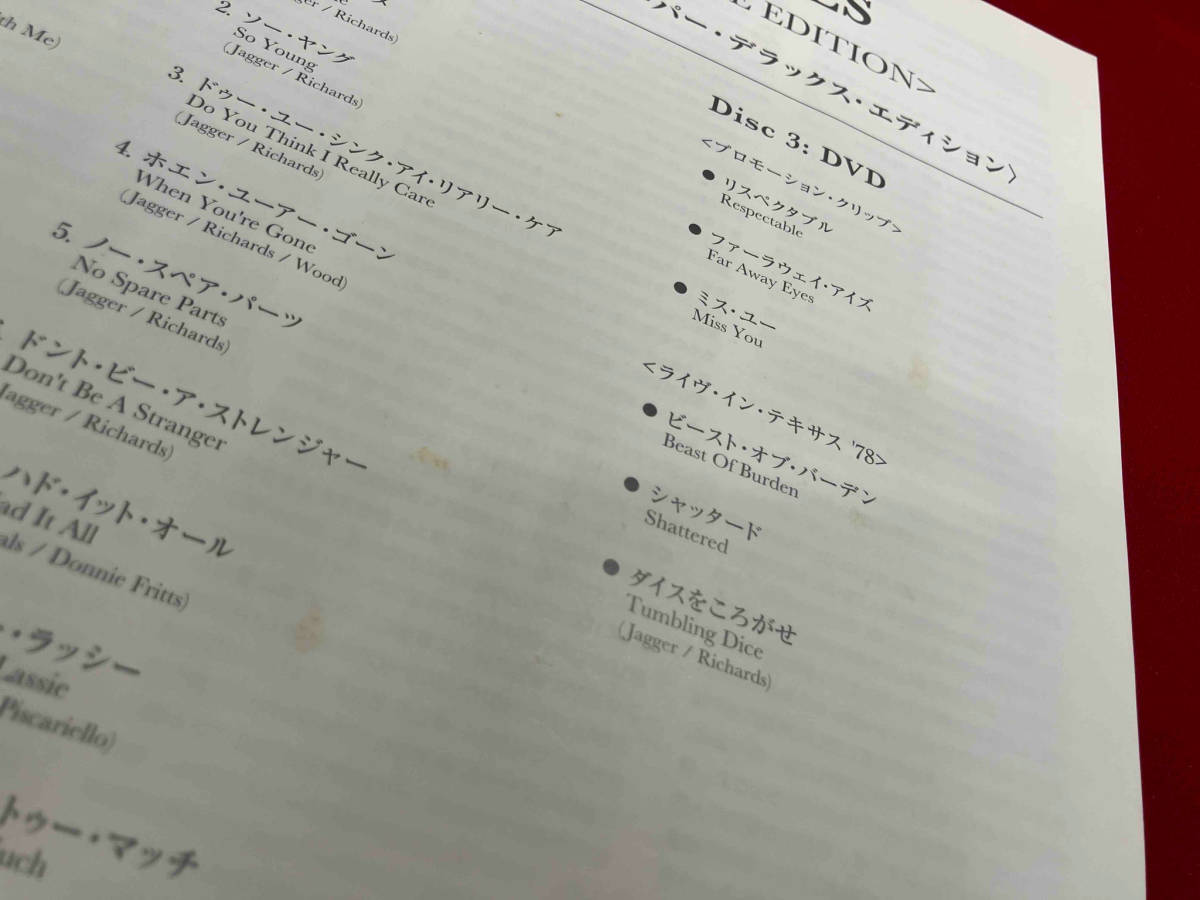 th Me)
(Jagger / Richards)
2. ソー・ヤング
So Young
(Jagger / Richards)
3. ドゥー・ユー・シンク・アイ・リアリー・ケア
Do You Think I Really Care
(Jagger / Richards)
4. ホエン・ユーアー・ゴーン
When You're Gone
(Jagger / Richards / Wood)
5. ノー・スペア・パーツ
No Spare Parts
(Jagger / Richards)
ドント・ビー・ア・ストレンジャー
Don't Be A Stranger
Jagger / Richards)
ハド・イット・オール
ad It All
als / Donnie Fritts)
・ラッシー
Lassie
Piscariello)
トゥー・マッチ
uch
ES
E EDITION>
パー・デラックス・エディション〉
Disc 3: DVD
<プロモーション・クリップ>
● リスペクタブル
Respectable
● ファーラウェイ・アイズ
Far Away Eyes
● ミス・ユー
Miss You
<ライヴ・イン・テキサス '78>
● ビースト・オブ・バーデン
Beast Of Burden
● シャッタード
Shattered
● ダイスをころがせ
Tumbling Dice
(Jagger / Richards)